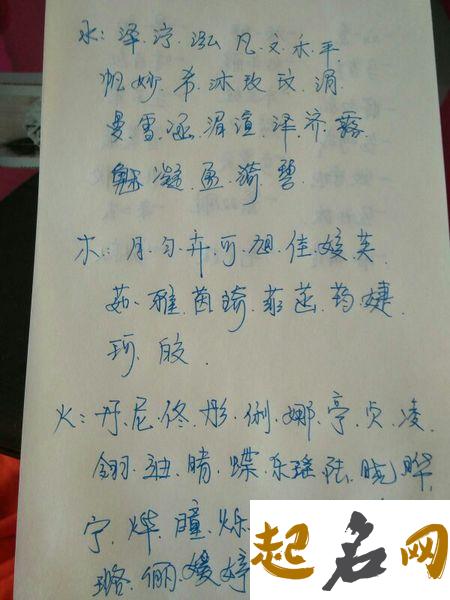 水:泽.泞.泓.凡.文.禾.平.
帆.妙.希.冰.玫.玟.湄.
曼.雪.涵.湄.渲.泽.济.露.
魅.凝.盈.漪.碧.
木:月.匀.卉.可.旭.佳.媛.芙.
茹.雅.茵.琦.菲.蕊.药.婕.
珂.皎.
火:丹.尼.佟.彤.俐.娜.亭.贞.凌.
翎.迪.晴.蝶.东.瑶.陆.晓.晔.
宁.烨.瞳.烁
璐.俪.嫒.婷
起名网